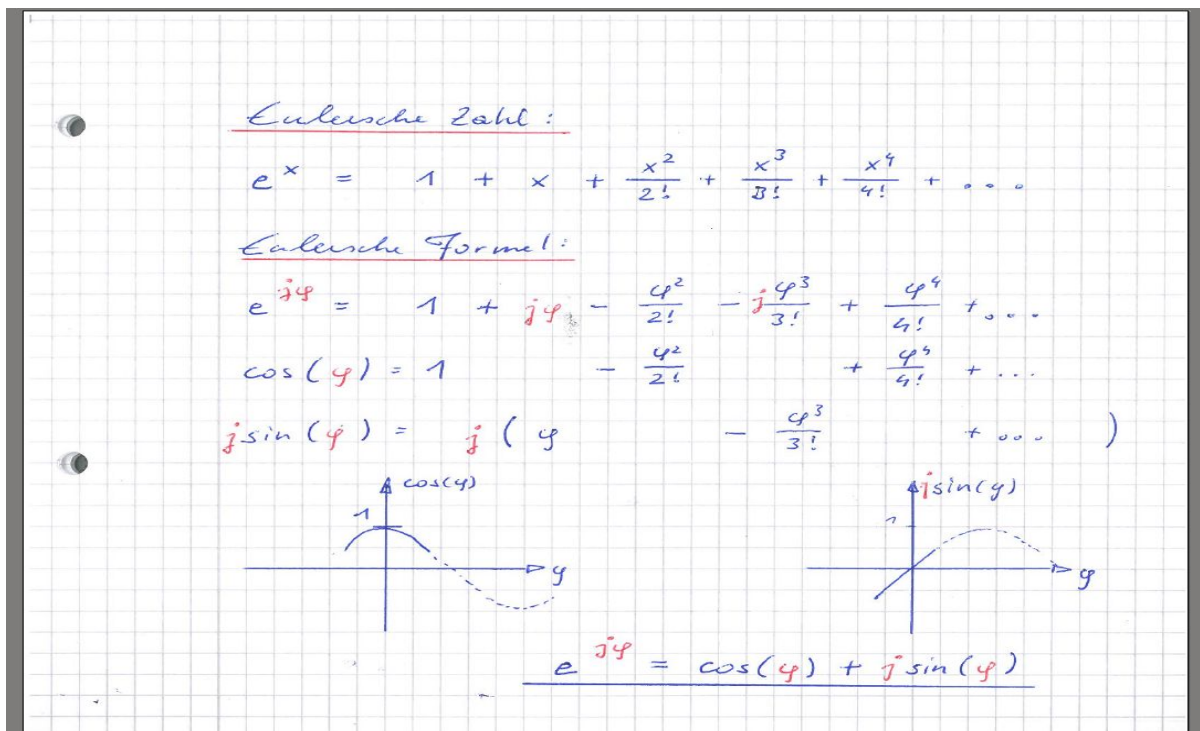 Eulersche Zahl:
e^x = 1 + x + x^2/2! + x^3/3! + x^4/4! + ...
Eulersche Formel:
e^jφ = 1 + jφ - φ^2/2! - jφ^3/3! + φ^4/4! + ...
cos(φ) = 1 - φ^2/2! + φ^4/4! + ...
j sin(φ) = j(φ - φ^3/3! + ...)
cos(φ)
1
φ
j sin(φ)
1
φ
e^jφ = cos(φ) + j sin(φ)